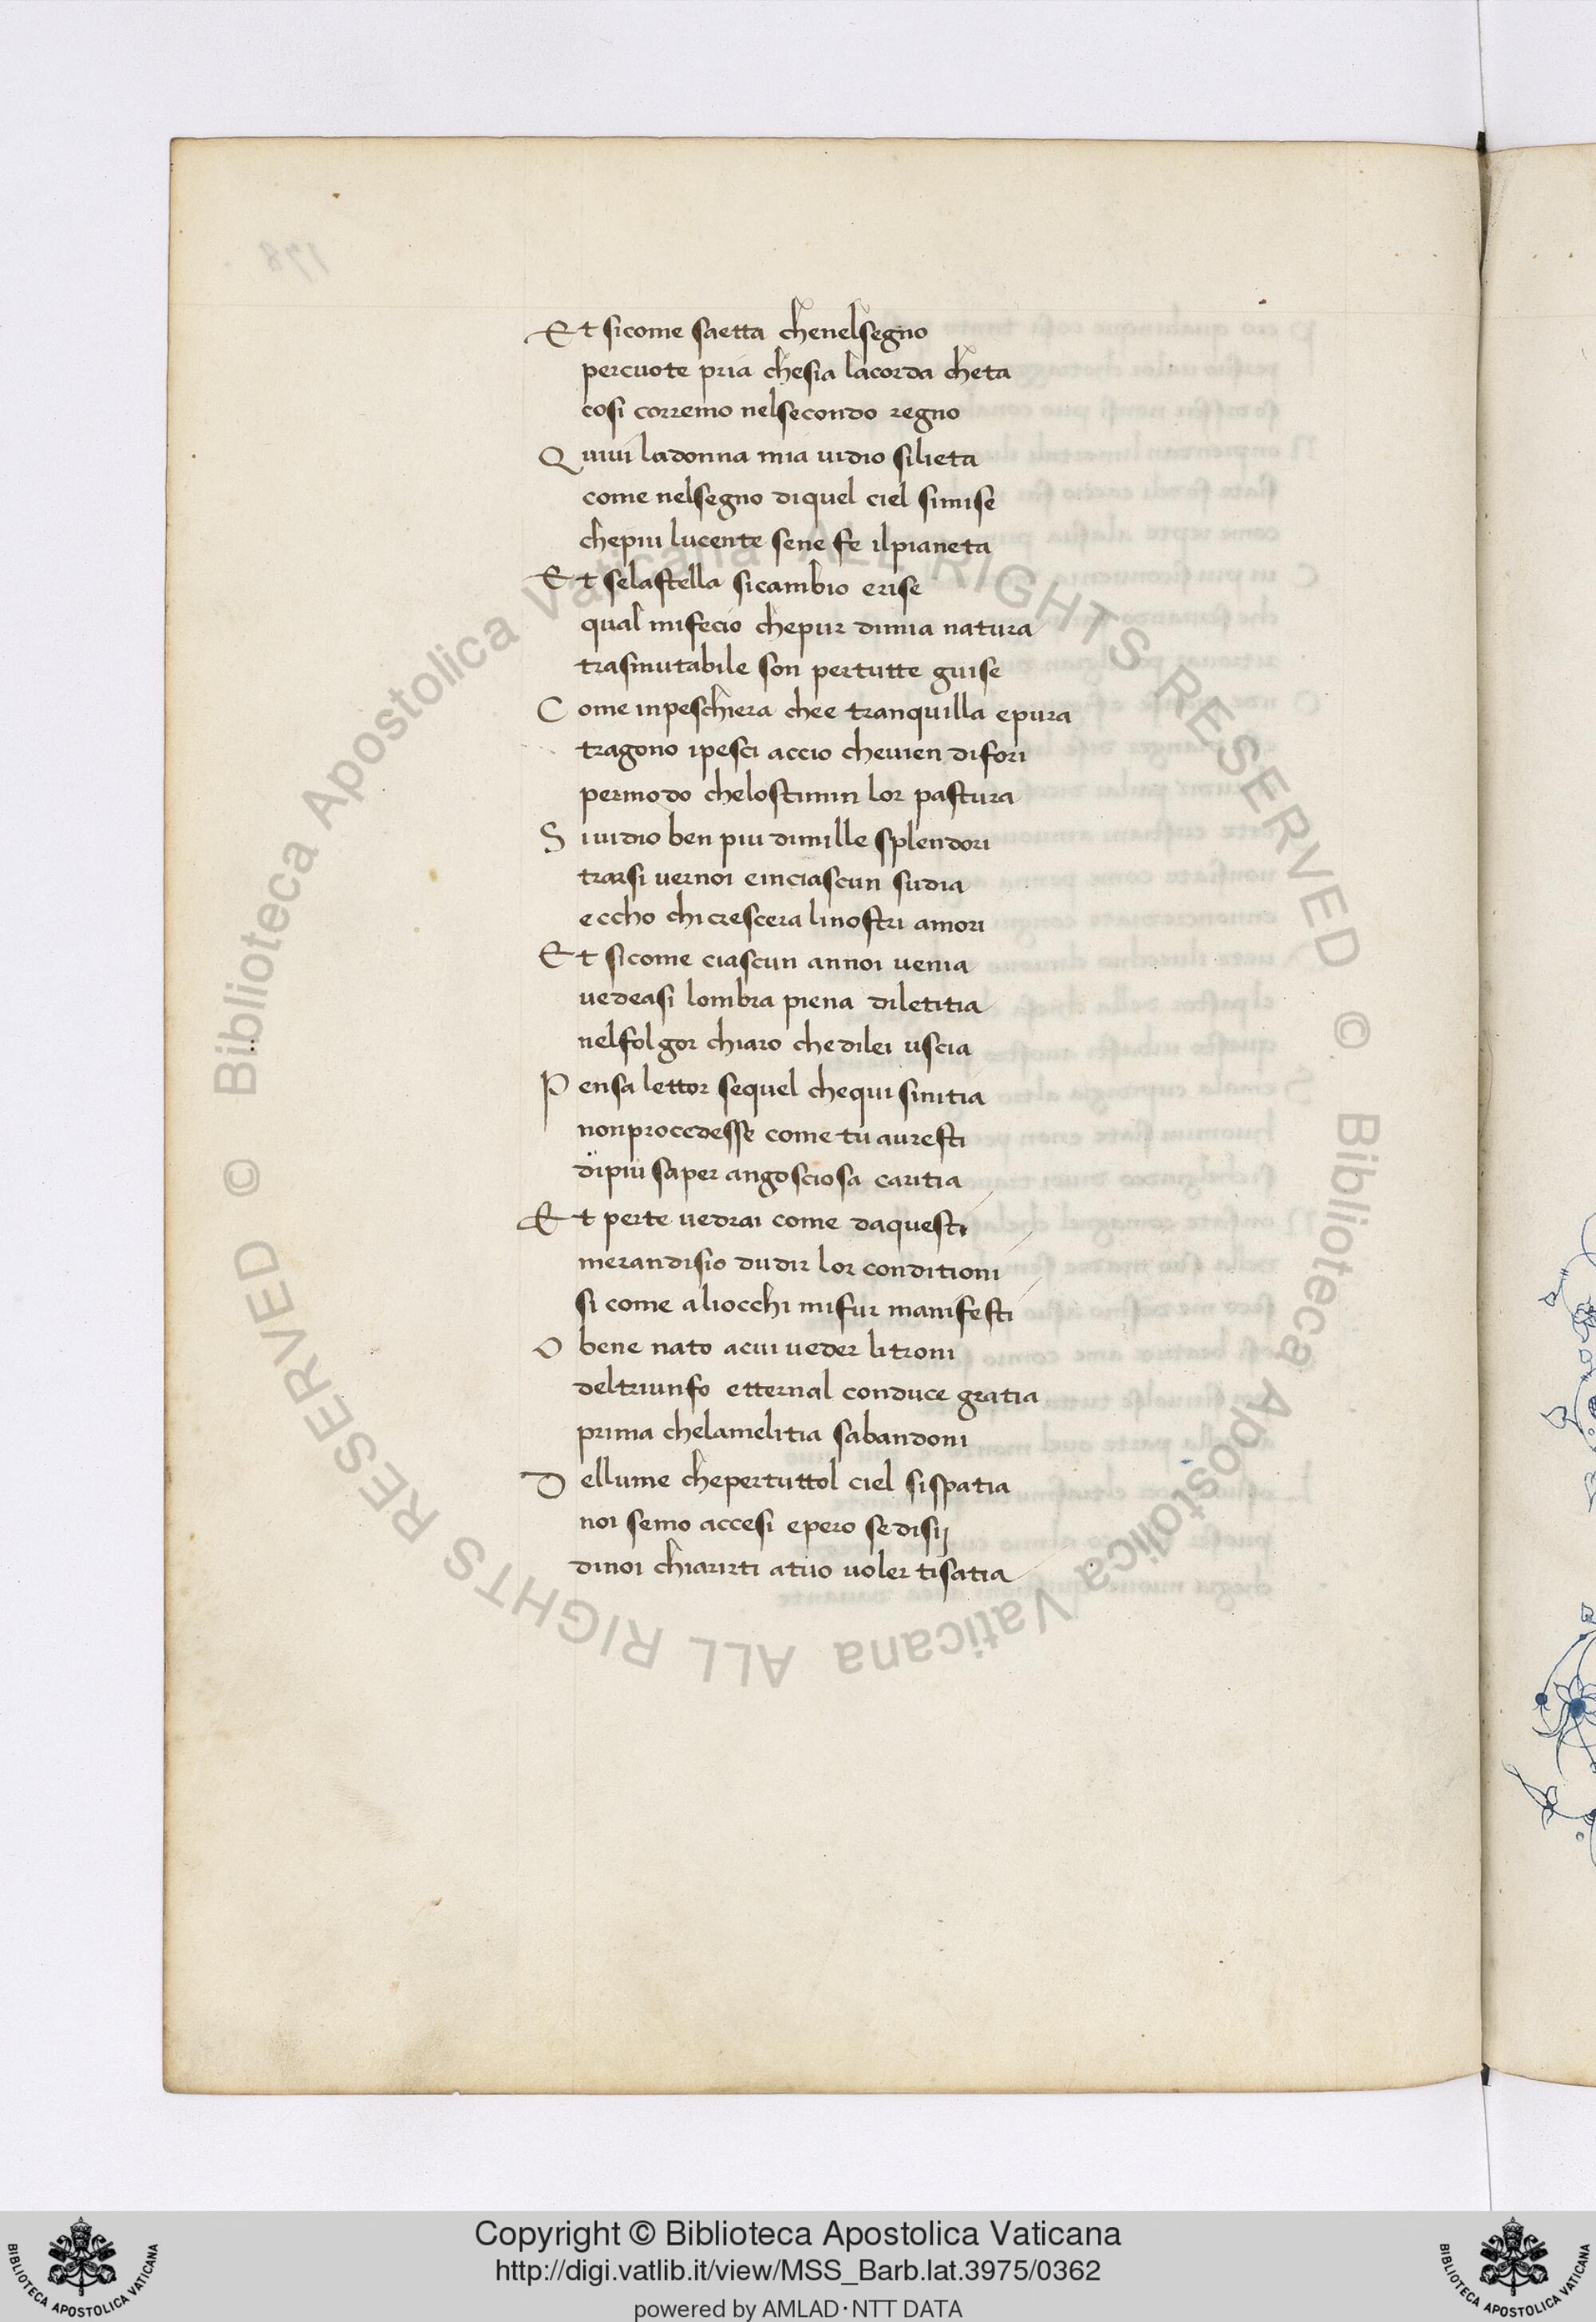 Et sicome saetta chenelsegno
percuote pria chesia lacorda cheta
cosi corremo nelsecondo regno
Quiui ladonna mia uidio silieta
come nelsegno diquel ciel simise
chepiu lucente sene fe ilpianeta
Et selastella sicambio erise
qual mifecio chepur dimia natura
trasmutabile son pertutte guise
Come inpeschiera chee tranquilla epura
tragono ipesci accio cheuien difori
permodo chelostimin lor pastura
Siuidio ben piu dimille splendori
trarsi uernoi einciascun sudia
eccho chicrescera linostri amori
Et sicome ciascun annoi uenia
uedeasi lombra piena diletitia
nelfolgor chiaro chedilei uscia
Pensa lettor sequel chequi sinitia
nonprocedesse come tu auresti
dipiu saper angosciosa caritia
Et perte uedrai come daquesti
merandisio dudir lor conditioni
si come aliocchi mifur manifesti
O bene nato acui ueder litroni
deltriunfo etternal conduce gratia
prima chelamelitia sabandoni
Dellume chepertuttol ciel sispatia
noi semo accesi epero sedisij
dinoi chiarirti atuo uoler tisatia
© Biblioteca Apostolica Vaticana ALL RIGHTS RESERVED © Biblioteca Apostolica Vaticana ALL RIGHTS RESERVED
Copyright © Biblioteca Apostolica Vaticana
http://digi.vatlib.it/view/MSS_Barb.lat.3975/0362
powered by AMLAD·NTT DATA
BIBLIOTECA APOSTOLICA VATICANA
BIBLIOTECA APOSTOLICA VATICANA